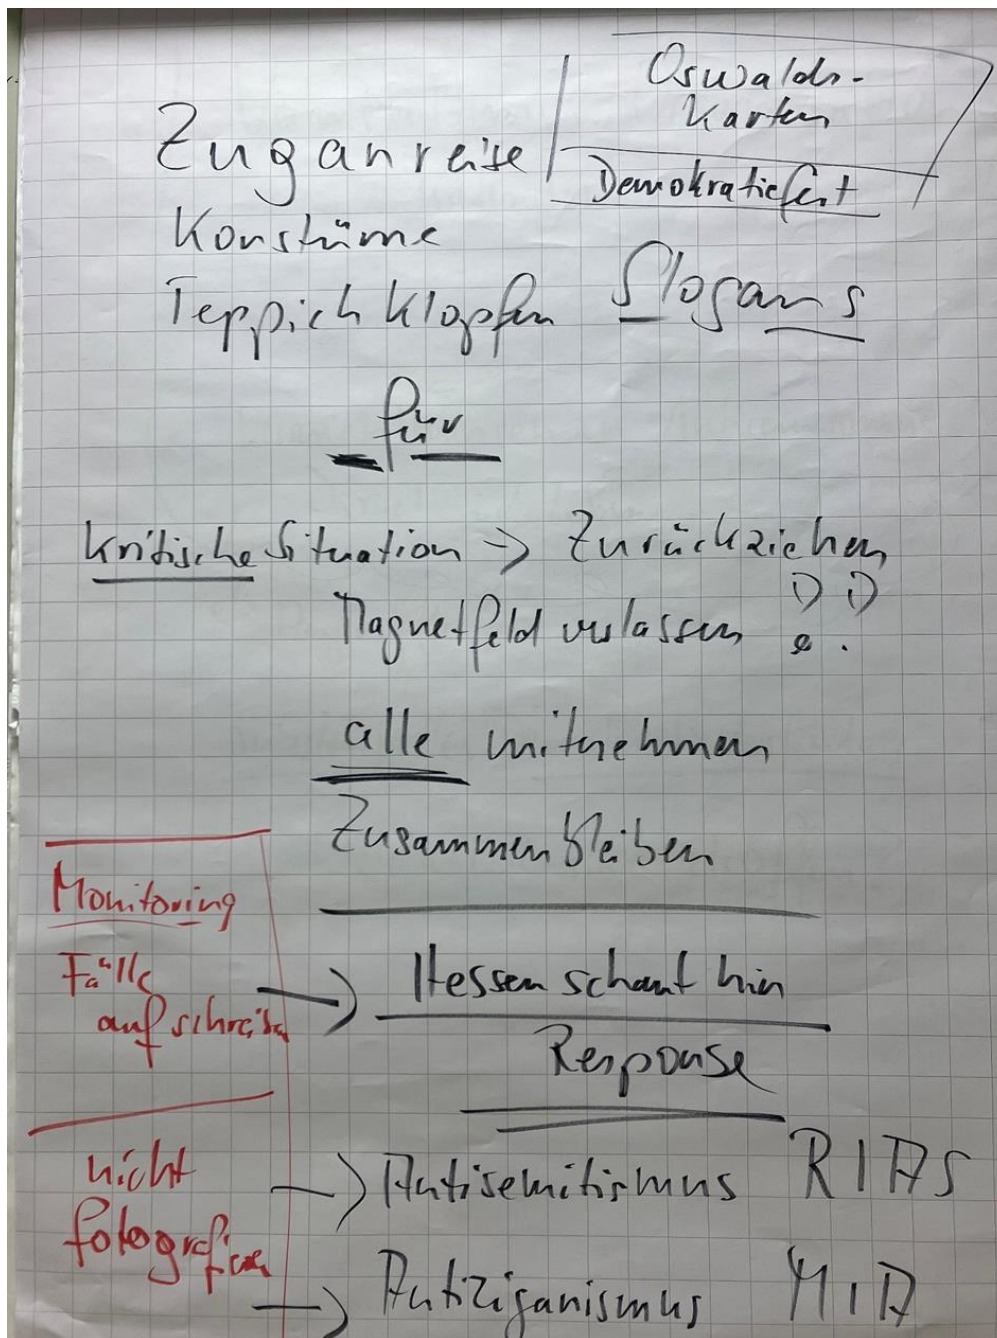 Zuganreise
Oswalds-
Karten
Demokratiefest
Konstüme
Teppich klopfen
Slogans
für
kritische Situation → Zurückziehen
Magnetfeld verlassen !!
alle mitnehmen
Zusammen bleiben
Monitoring
Fälle
aufschreiben
→ Hessen schaut hin
Response
nicht
fotografieren
→ Antisemitismus RIAS
→ Antiziganismus MIA